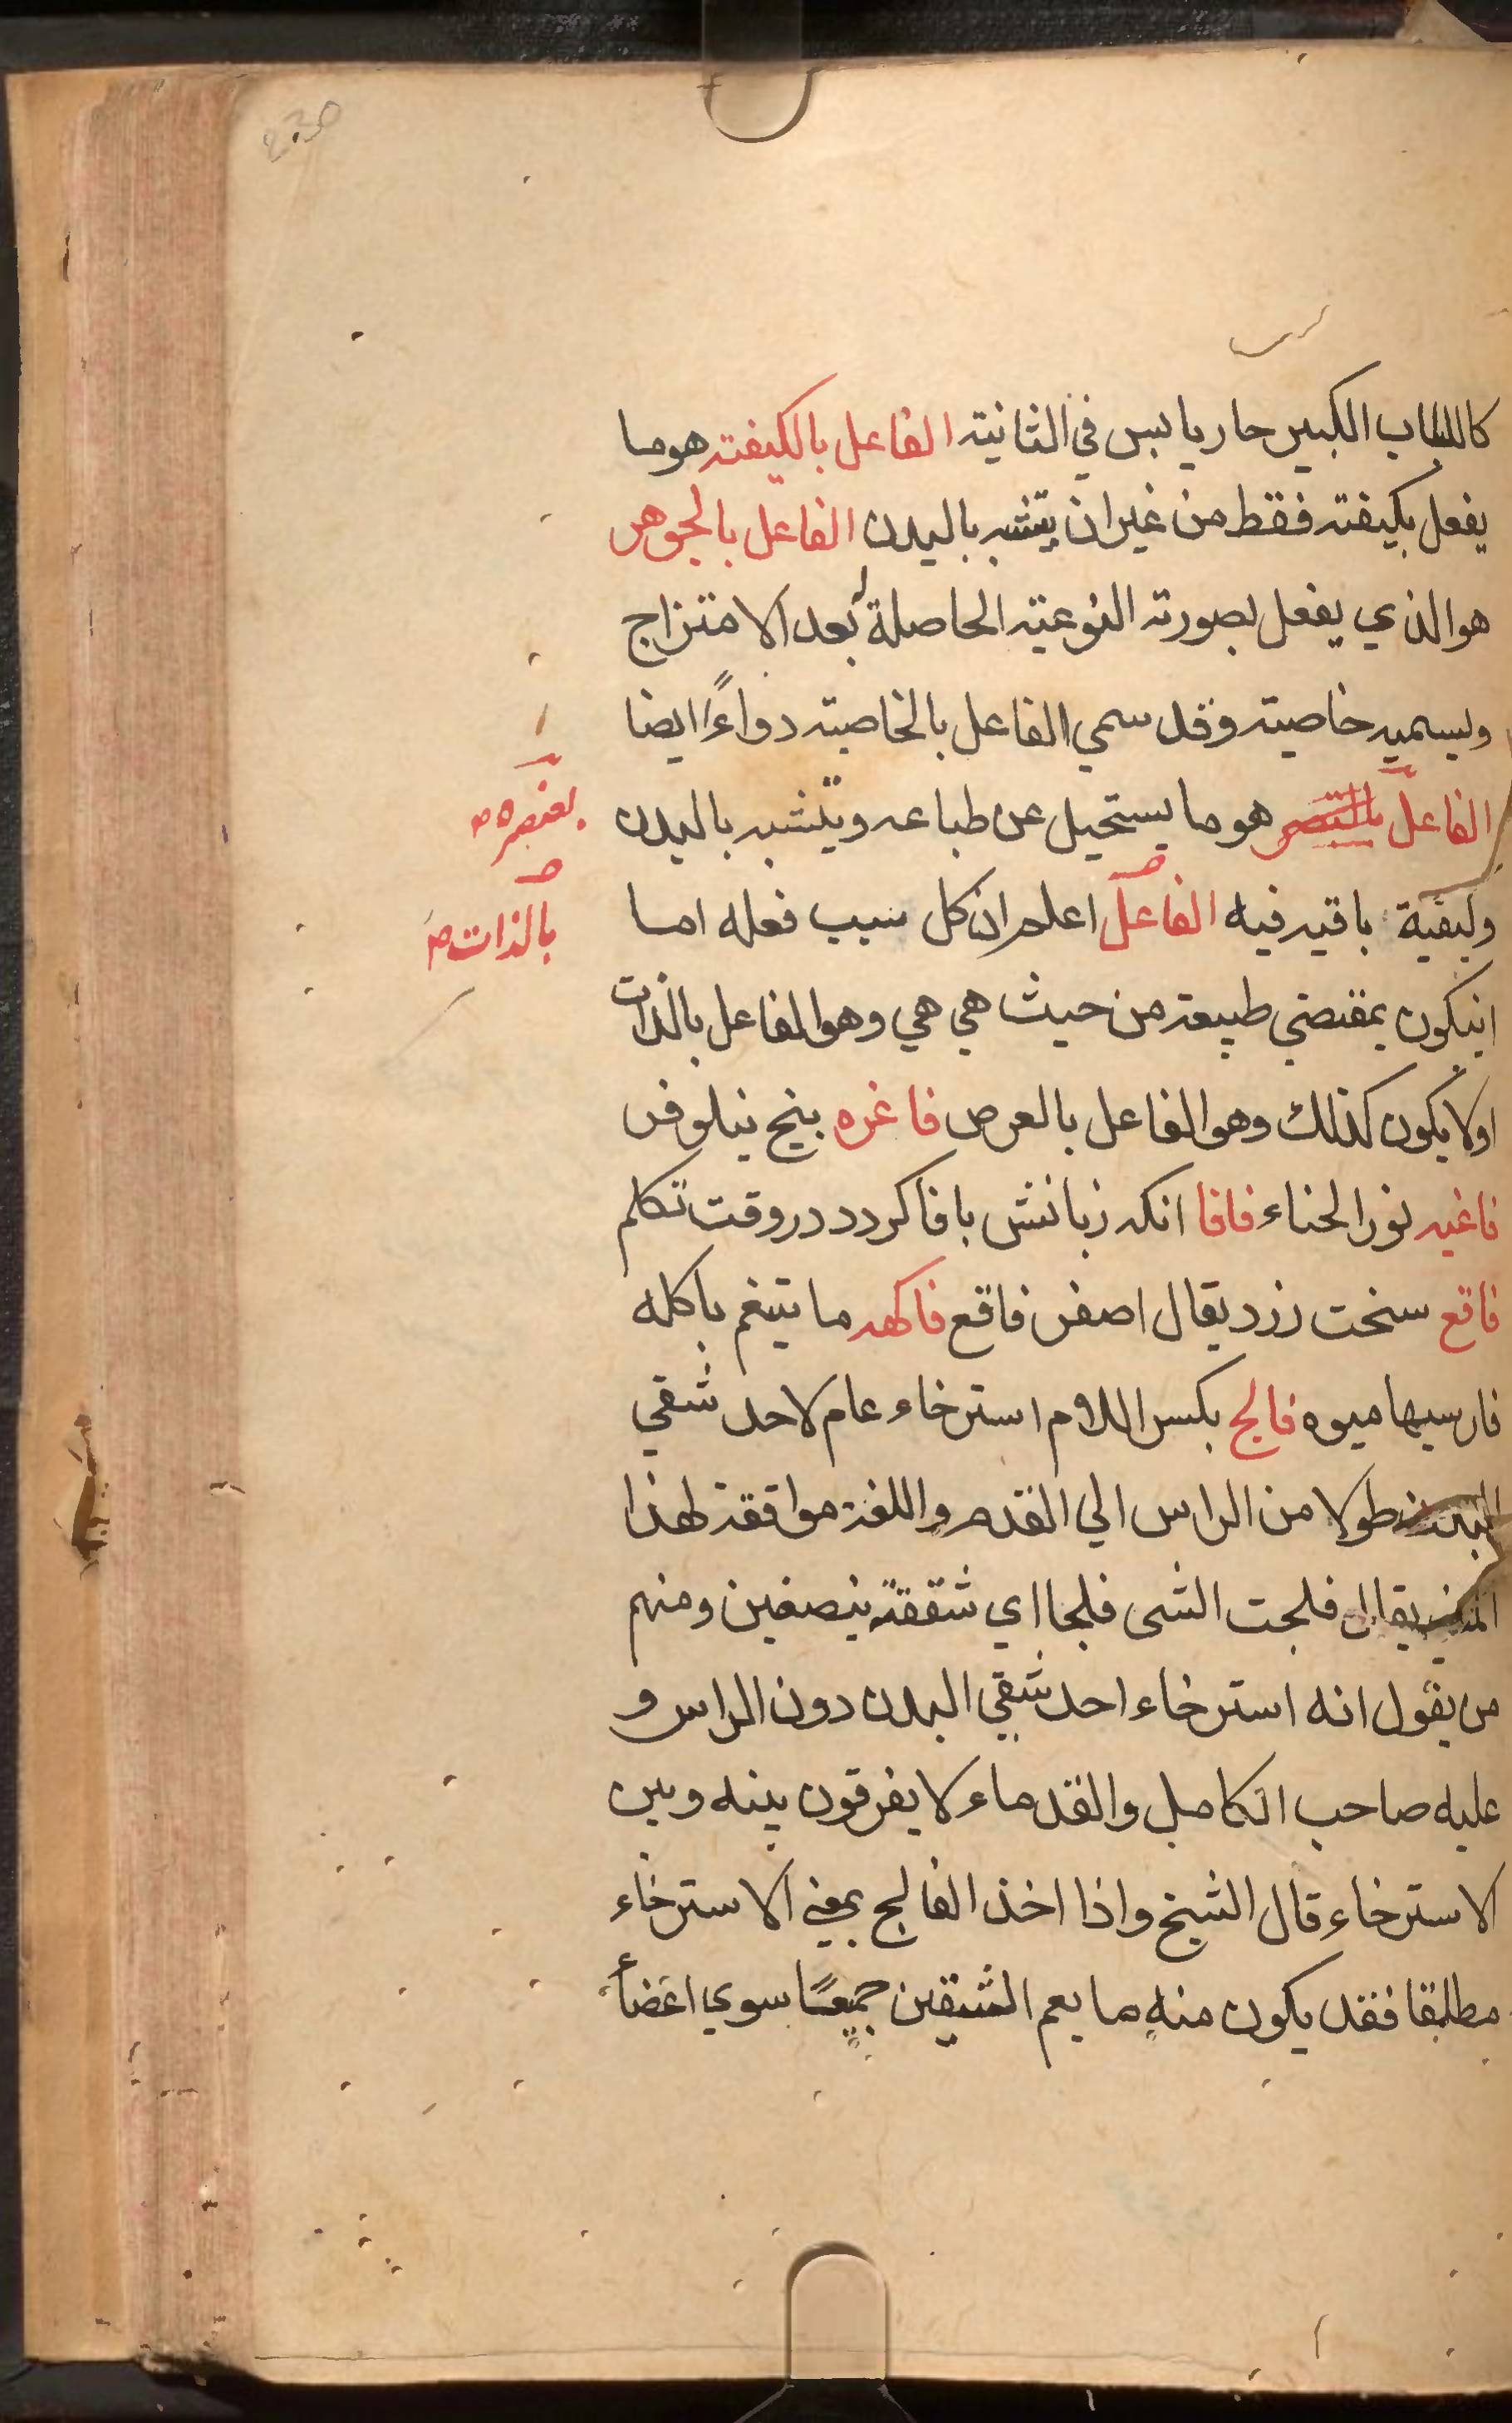 كاللبلاب الكبير حار يابس في الثانية الفاعل بالكيفته هو ما
يفعل بكيفته فقط من غير ان يتشبه بالبدن الفاعل بالجوهر
هو الذي يفعل بصورته النوعيته الحاصلة له بعد الامتزاج
ويسميه خاصيته وقد سمي الفاعل بالخاصيته دواءً ايضا
الفاعل هو ما يستحيل عن طباعه ويتشبه بالبدن
بعنصره ص
ولبقية باقيه فيه الفاعل اعلم ان كل سبب فعله اما
بالذات ص
انيكون بمقتضي طبيعة من حيث هي هي وهو الفاعل بالذات
اولا يكون كذلك وهو الفاعل بالعرض فاغره بنج نيلوفر
فاغيه نور الحناء فافا انكه زبانش بافا كردد در وقت تكلم
فاقع سخت زرد يقال اصفر فاقع فاكهه ما يتنعم باكله
فارسيها ميوه فالج بكسر اللام استرخاء عام لاحد شقي
البدن طولا من الراس الي القدم واللغة موافقة لهذا
المعني يقال فلجت الشى فلجا اي شققته بنصفين ومنهم
من يقول انه استرخاء احد شقي البدن دون الراس و
عليه صاحب الكامل والقدماء لا يفرقون بينه وبين
الاسترخاء قال الشيخ واذا اخذ الفالج بمعني الاسترخاء
مطلقا فقد يكون منه ما يعم الشقين جميعًا سوي اعضأ